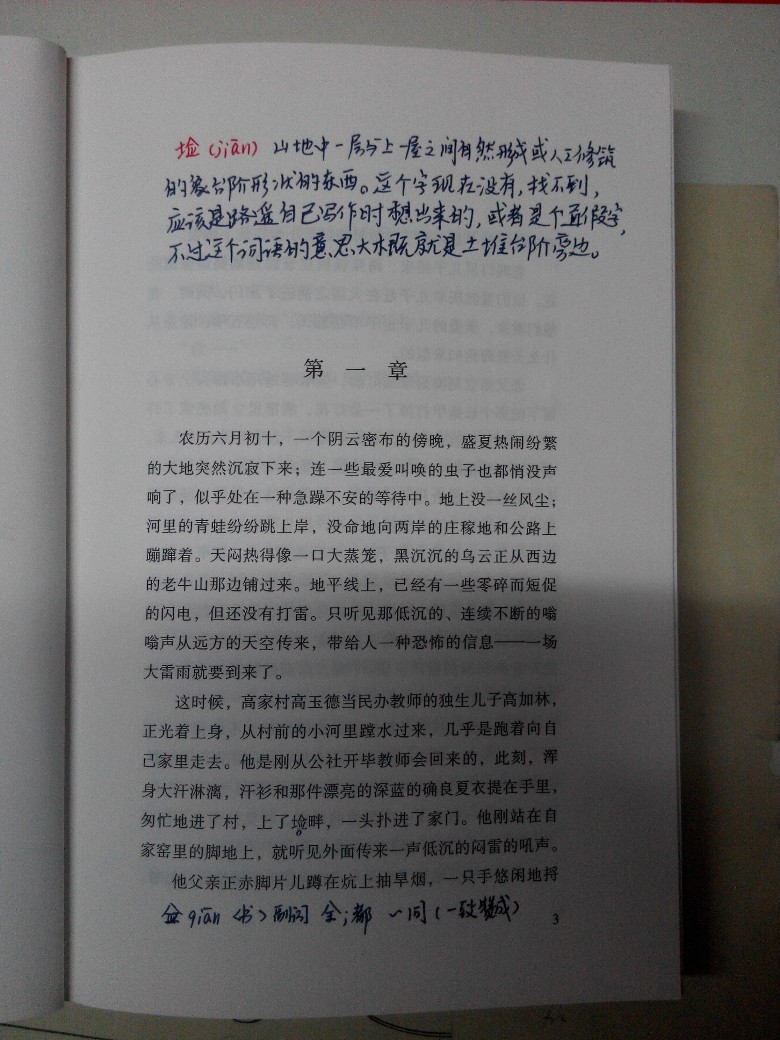 垴(jiān) 山地中一层与上一屋之间自然形成或人工修筑
的象台阶形状的东西。这个字现在没有,找不到,
应该是路遥自己写作时想出来的,或者是个通假字,
不过这个词语的意思大概就是土堆台阶旁边。
第一章
农历六月初十,一个阴云密布的傍晚,盛夏热闹纷繁
的大地突然沉寂下来;连一些最爱叫唤的虫子也都悄没声
响了,似乎处在一种急躁不安的等待中。地上没一丝风尘;
河里的青蛙纷纷跳上岸,没命地向两岸的庄稼地和公路上
蹦蹿着。天闷热得像一口大蒸笼,黑沉沉的乌云正从西边
的老牛山那边铺过来。地平线上,已经有一些零碎而短促
的闪电,但还没有打雷。只听见那低沉的、连续不断的嗡
嗡声从远方的天空传来,带给人一种恐怖的信息——一场
大雷雨就要到来了。
这时候,高家村高玉德当民办教师的独生儿子高加林,
正光着上身,从村前的小河里蹚水过来,几乎是跑着向自
己家里走去。他是刚从公社开毕教师会回来的,此刻,浑
身大汗淋漓,汗衫和那件漂亮的深蓝的确良夏衣提在手里,
匆忙地进了村,上了垴畔,一头扑进了家门。他刚站在自
家窑里的脚地上,就听见外面传来一声低沉的闷雷的吼声。
他父亲正赤脚片儿蹲在炕上抽旱烟,一只手悠闲地捋
佥 qiān〈书〉副词 全;都 ~同(一致赞成)
3